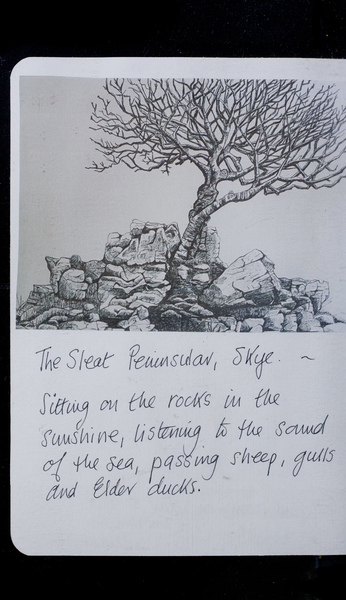 The Sleat Peninsular, Skye. ~
Sitting on the rocks in the
sunshine, listening to the sound
of the sea, passing sheep, gulls
and Elder ducks.